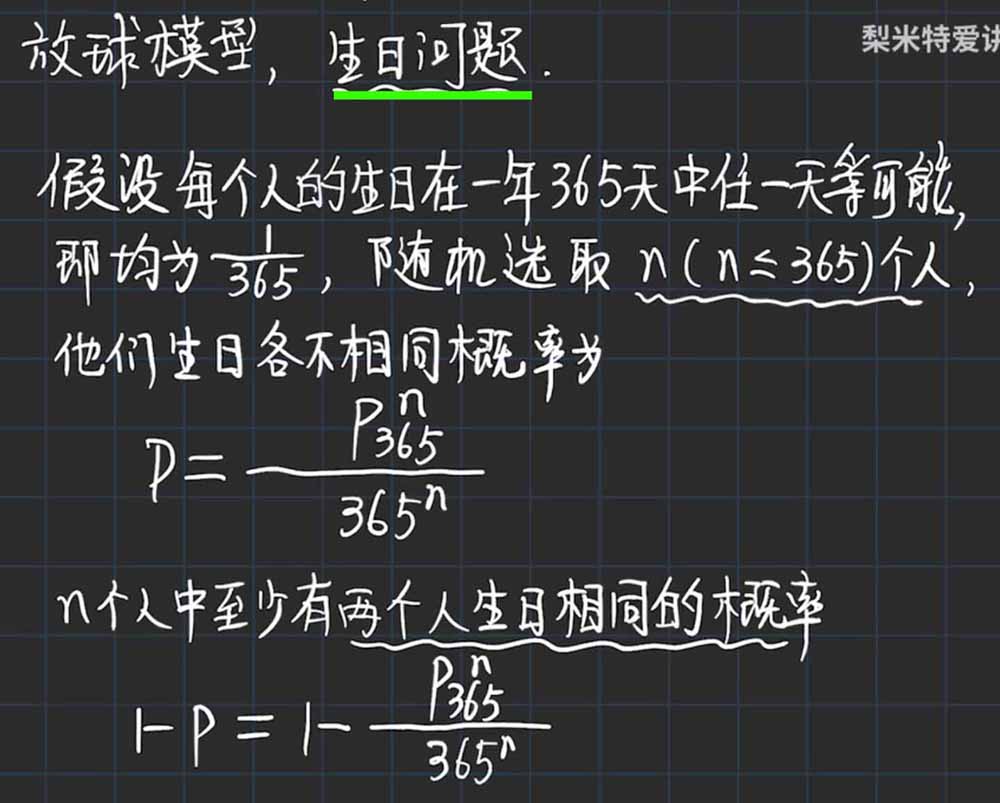 放球模型, 生日问题.
梨米特爱讲
假设每个人的生日在一年365天中任一天等可能,
即均为 1/365, 随机选取 n(n≤365)个人,
他们生日各不相同概率为
P = P_365^n / 365^n
n个人中至少有两个人生日相同的概率
1-P = 1 - P_365^n / 365^n